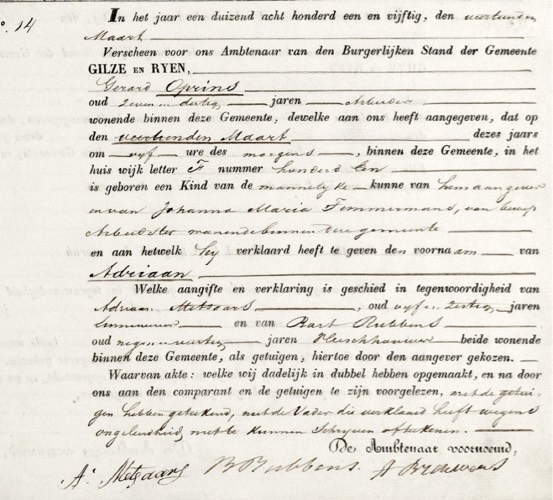 No. 14
In het jaar een duizend acht honderd een en vijftig, den veertienden
Maart
Verscheen voor ons Ambtenaar van den Burgerlijken Stand der Gemeente
GILZE EN RYEN,
Gerard Oprins
oud zeven en dertig jaren Arbeider
wonende binnen deze Gemeente, dewelke aan ons heeft aangegeven, dat op
den veertienden Maart dezes jaars
om vyf ure des morgens, binnen deze Gemeente, in het
huis wijk letter F nummer honderd een
is geboren een Kind van de mannelyke kunne van hem aangever
en van Johanna Maria Timmermans, van beroep
Arbeidster wonende binnen deze gemeente
en aan hetwelk hy verklaard heeft te geven den voornaam van
Adriaan
Welke aangifte en verklaring is geschied in tegenwoordigheid van
Adriaan Metsaars, oud vyf en dertig jaren
en van Bart Rubbens
oud negen en veertig jaren Vleeschhouwer beide wonende
binnen deze Gemeente, als getuigen, hiertoe door den aangever gekozen.
Waarvan akte: welke wij dadelijk in dubbel hebben opgemaakt, en na door
ons aan den comparant en de getuigen te zijn voorgelezen, met de getui-
gen hebben geteekend, met de Vader die verklaard heeft wegens
ongeleerdheid niet te kunnen schryven of teekenen.
De Ambtenaar voornoemd,
A. Metsaars B Rubbens. A Brouwers